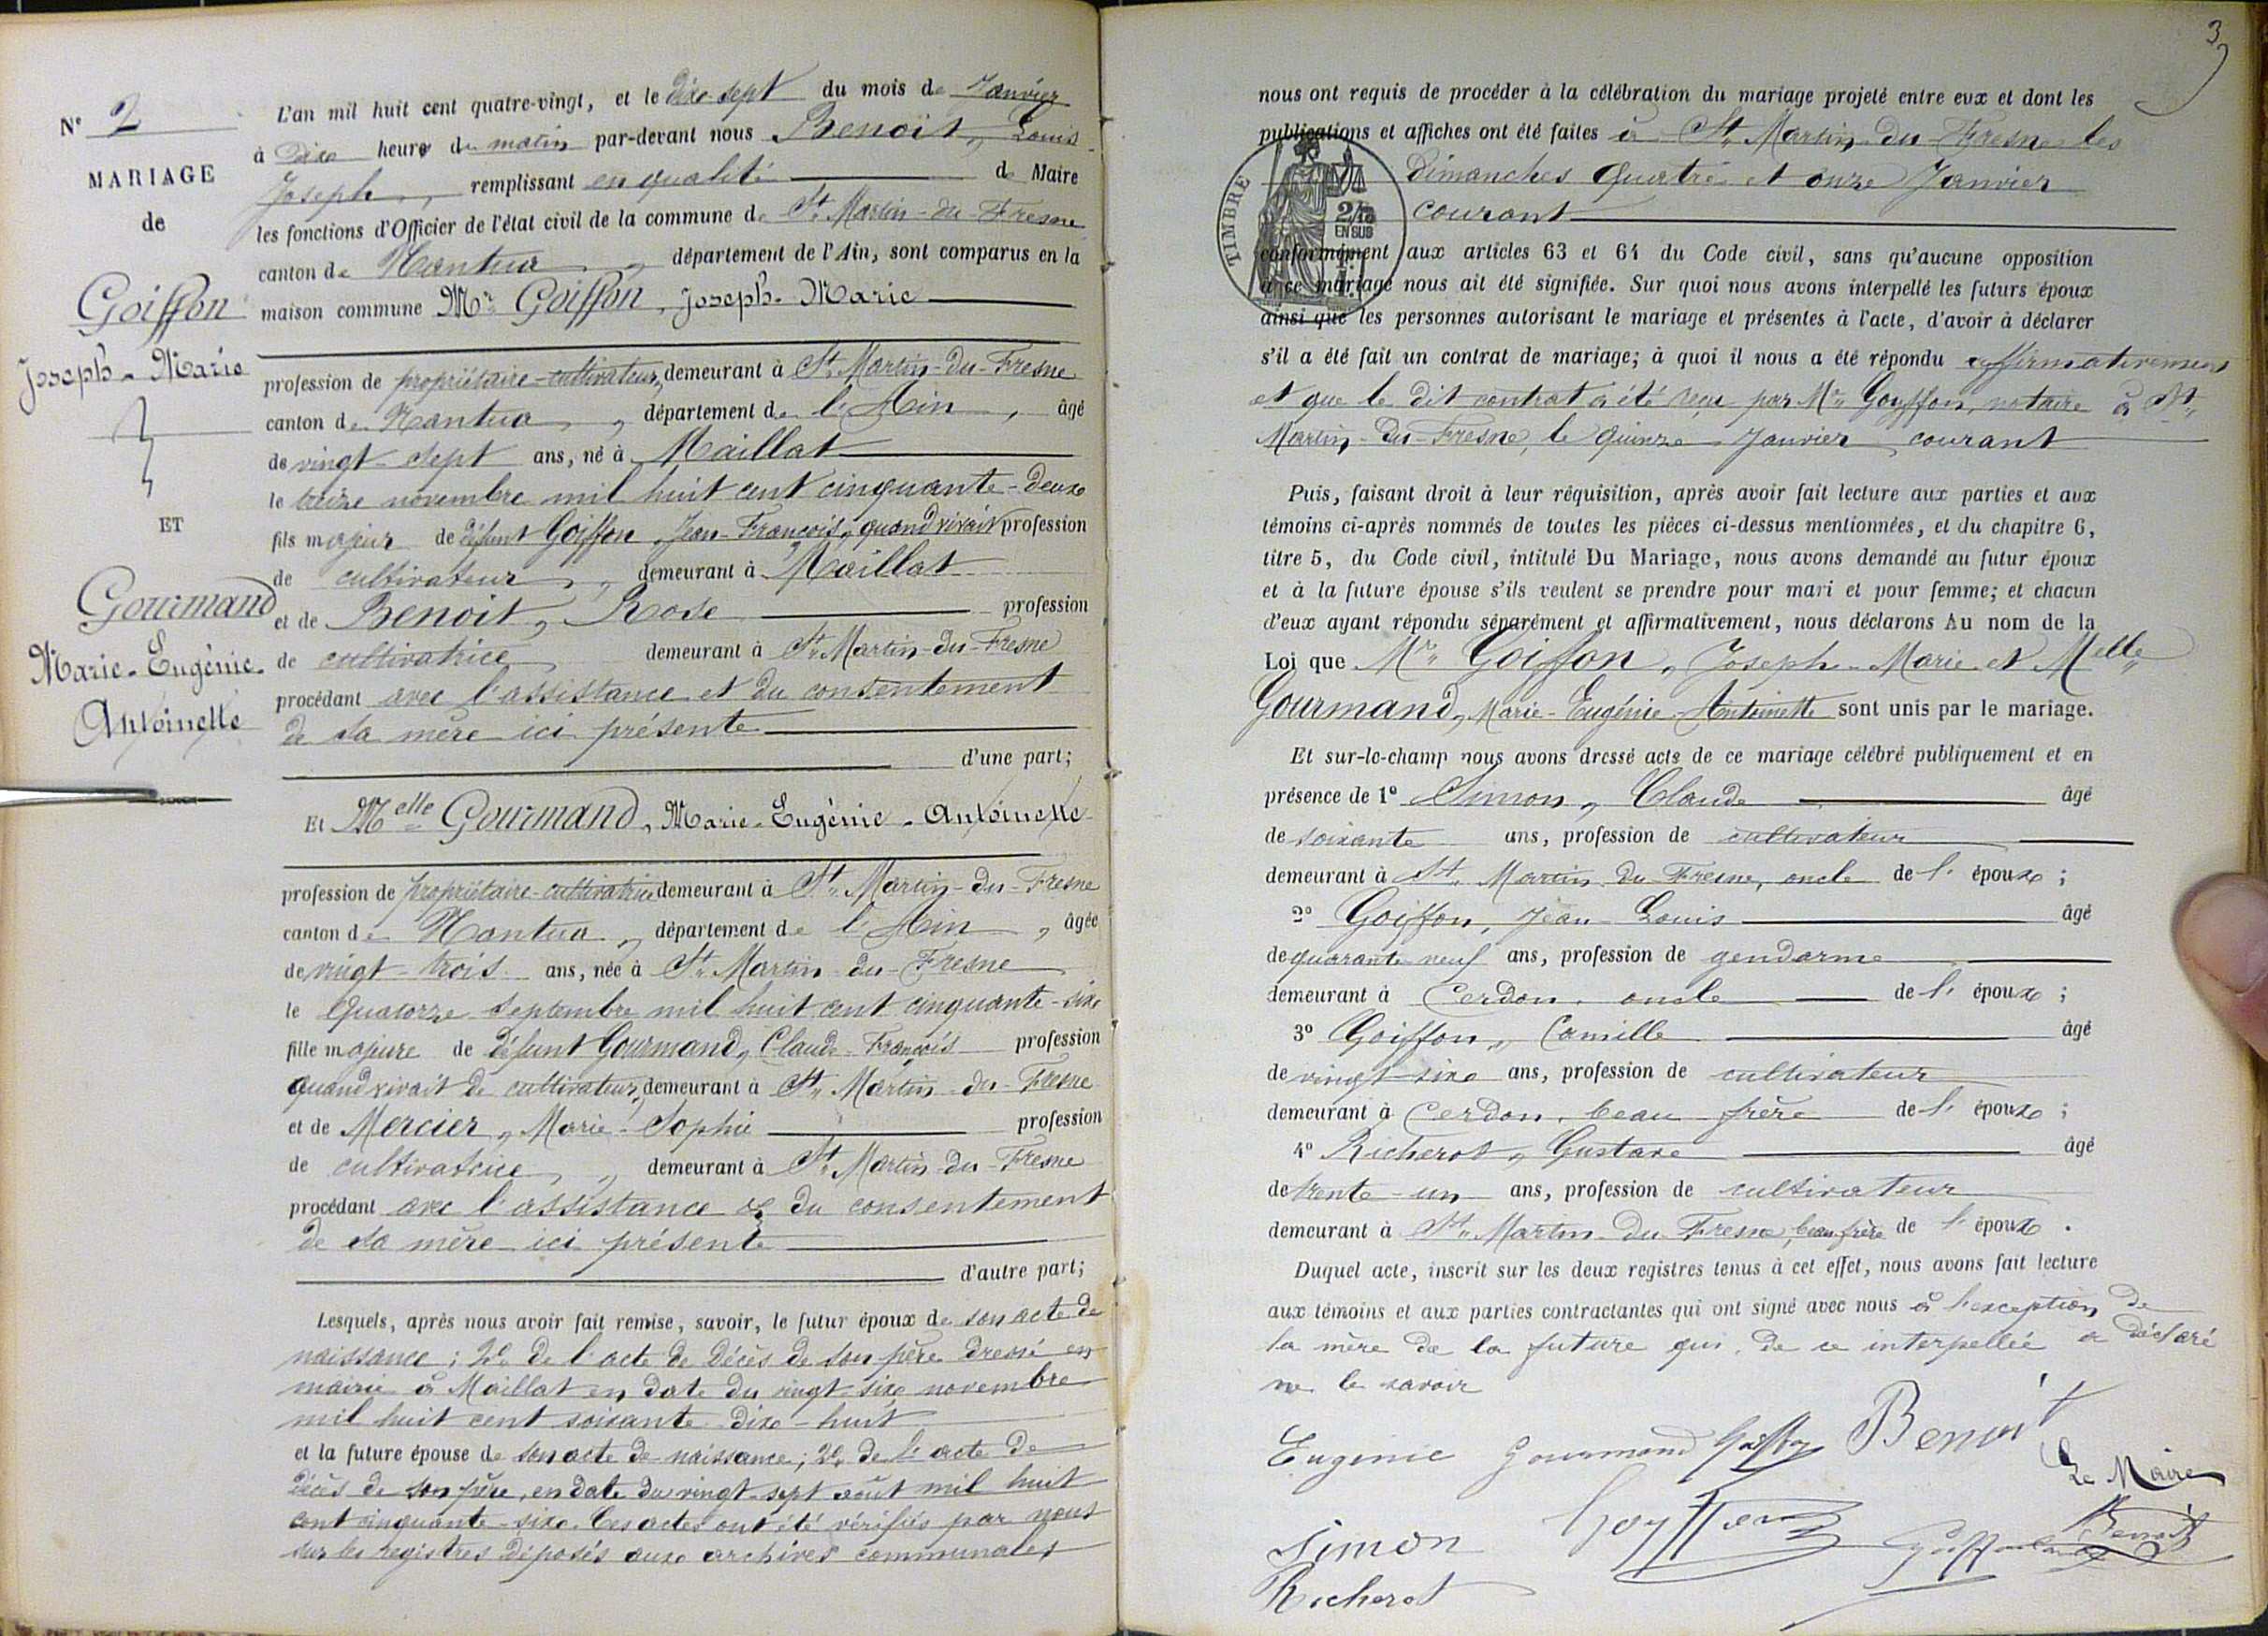 N° 2
MARIAGE
de
Goiffon
Joseph-Marie
ET
Gourmand
Marie-Eugénie-
Antoinette
L'an mil huit cent quatre-vingt, et le dix-sept du mois de Janvier
à Dix heure du matin par-devant nous Benoît, Louis-
Joseph, remplissant en qualité de Maire
les fonctions d'Officier de l'état civil de la commune de St Martin-du-Fresne
canton de Nantua, département de l'Ain, sont comparus en la
maison commune Mr Goiffon, Joseph-Marie
profession de propriétaire-cultivateur, demeurant à St Martin-du-Fresne
canton de Nantua, département de l'Ain, âgé
de vingt-sept ans, né à Maillat
le treize novembre mil huit cent cinquante-deux
fils majeur de défunt Goiffon, Jean-François, quand vivait profession
de cultivateur, demeurant à Maillat
et de Benoit, Rose profession
de cultivatrice demeurant à St Martin-du-Fresne
procédant avec l'assistance et du consentement
de sa mère ici présente
d'une part;
Et Melle Gourmand, Marie-Eugénie-Antoinette
profession de propriétaire-cultivatrice demeurant à St Martin-du-Fresne
canton de Nantua, département de l'Ain, âgée
de vingt-trois ans, née à St Martin-du-Fresne
le quatorze septembre mil huit cent cinquante-six
fille majeure de défunt Gourmand, Claude-François profession
quand vivait de cultivateur, demeurant à St Martin-du-Fresne
et de Mercier, Marie-Sophie profession
de cultivatrice, demeurant à St Martin-du-Fresne
procédant avec l'assistance & du consentement
de sa mère ici présente
d'autre part;
Lesquels, après nous avoir fait remise, savoir, le futur époux de son acte de
naissance; 2° de l'acte de décès de son père dressé en
mairie à Maillat en date du vingt-six novembre
mil huit cent soixante-dix-huit
et la future épouse de son acte de naissance; 2° de l'acte de
décès de son père, en date du vingt-sept août mil huit
cent cinquante-six. Ces actes ont été vérifiés par nous
sur les registres déposés aux archives communales
3
nous ont requis de procéder à la célébration du mariage projeté entre eux et dont les
publications et affiches ont été faites à St Martin-du-Fresne les
Dimanches quatre et onze Janvier
courant
TIMBRE
EN SUS
conformément aux articles 63 et 64 du Code civil, sans qu'aucune opposition
à ce mariage nous ait été signifiée. Sur quoi nous avons interpellé les futurs époux
ainsi que les personnes autorisant le mariage et présentes à l'acte, d'avoir à déclarer
s'il a été fait un contrat de mariage; à quoi il nous a été répondu affirmativement
et que le dit contrat a été reçu par Me Goyffon, notaire à St
Martin-du-Fresne, le quinze Janvier courant
Puis, faisant droit à leur réquisition, après avoir fait lecture aux parties et aux
témoins ci-après nommés de toutes les pièces ci-dessus mentionnées, et du chapitre 6,
titre 5, du Code civil, intitulé Du Mariage, nous avons demandé au futur époux
et à la future épouse s'ils veulent se prendre pour mari et pour femme; et chacun
d'eux ayant répondu séparément et affirmativement, nous déclarons Au nom de la
Loi que Mr Goiffon, Joseph-Marie et Melle
Gourmand, Marie-Eugénie-Antoinette sont unis par le mariage.
Et sur-le-champ nous avons dressé acte de ce mariage célébré publiquement et en
présence de 1° Simon, Claude âgé
de soixante ans, profession de cultivateur
demeurant à St Martin du Fresne, oncle de l'époux;
2° Goiffon, Jean-Louis âgé
de quarante neuf ans, profession de gendarme
demeurant à Cerdon, oncle de l'époux;
3° Goiffon, Camille âgé
de vingt-six ans, profession de cultivateur
demeurant à Cerdon, beau-frère de l'époux;
4° Richerot, Gustave âgé
de trente-un ans, profession de cultivateur
demeurant à St Martin-du-Fresne, beau frère de l'époux.
Duquel acte, inscrit sur les deux registres tenus à cet effet, nous avons fait lecture
aux témoins et aux parties contractantes qui ont signé avec nous à l'exception de
la mère de la future qui, de ce interpellée a déclaré
ne le savoir
Eugénie Gourmand Goiffon Benoit
Le Maire
Simon Goyffon Benoit
Richerot